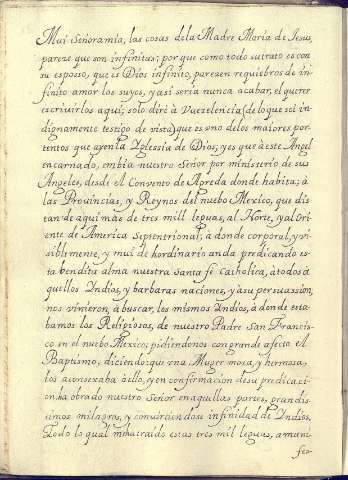 Mui Señora mia, las cosas dela Madre Maria de Iesus,
pareze que son infinitas; por que como todo su trato es con
su esposso, que es Dios infinito, parezen requiebros de in-
finito amor los suyos, y asi seria nunca acabar, el querer
escrivirlos aqui; solo diré à Vuezelencia (de lo que soi in-
dignamente testigo de vista) que es uno de los maiores por-
tentos que ay en la Yglesia de Dios; y es que à este Angel
encarnado, embia nuestro Señor por ministerio de sus
Angeles, desde el Convento de Agreda donde habita; à
las Provincias, y Reynos del nuebo Mexico, que dis
tan de aqui màs de tres mill leguas, al Norte, y al Ori
ente de America Septentrional; à donde corporal, y vi
siblemente, y mui de hordinario anda predicando es
ta bendita alma nuestra Santa fe Catholica, à todos a
quellos Indios, y barbaras naciones, y à su persuassion,
nos vinieron, à buscar, los mismos Indios, à donde esta
bamos los Religiosos, de nuestro Padre San Francis
co en el nuebo Mexico; pidiendonos con grande afecto el
Baptismo, diciendo: que vna Muger moza, y hermosa,
los aconsexaba à ello, y en confirmacion de su predicaci
on ha obrado nuestro Señor en aquellas partes, grandis
simos milagros, y convirtiendose infinidad de Indios,
Todo lo qual mihatraido estas tres mil leguas, a mani
fes-